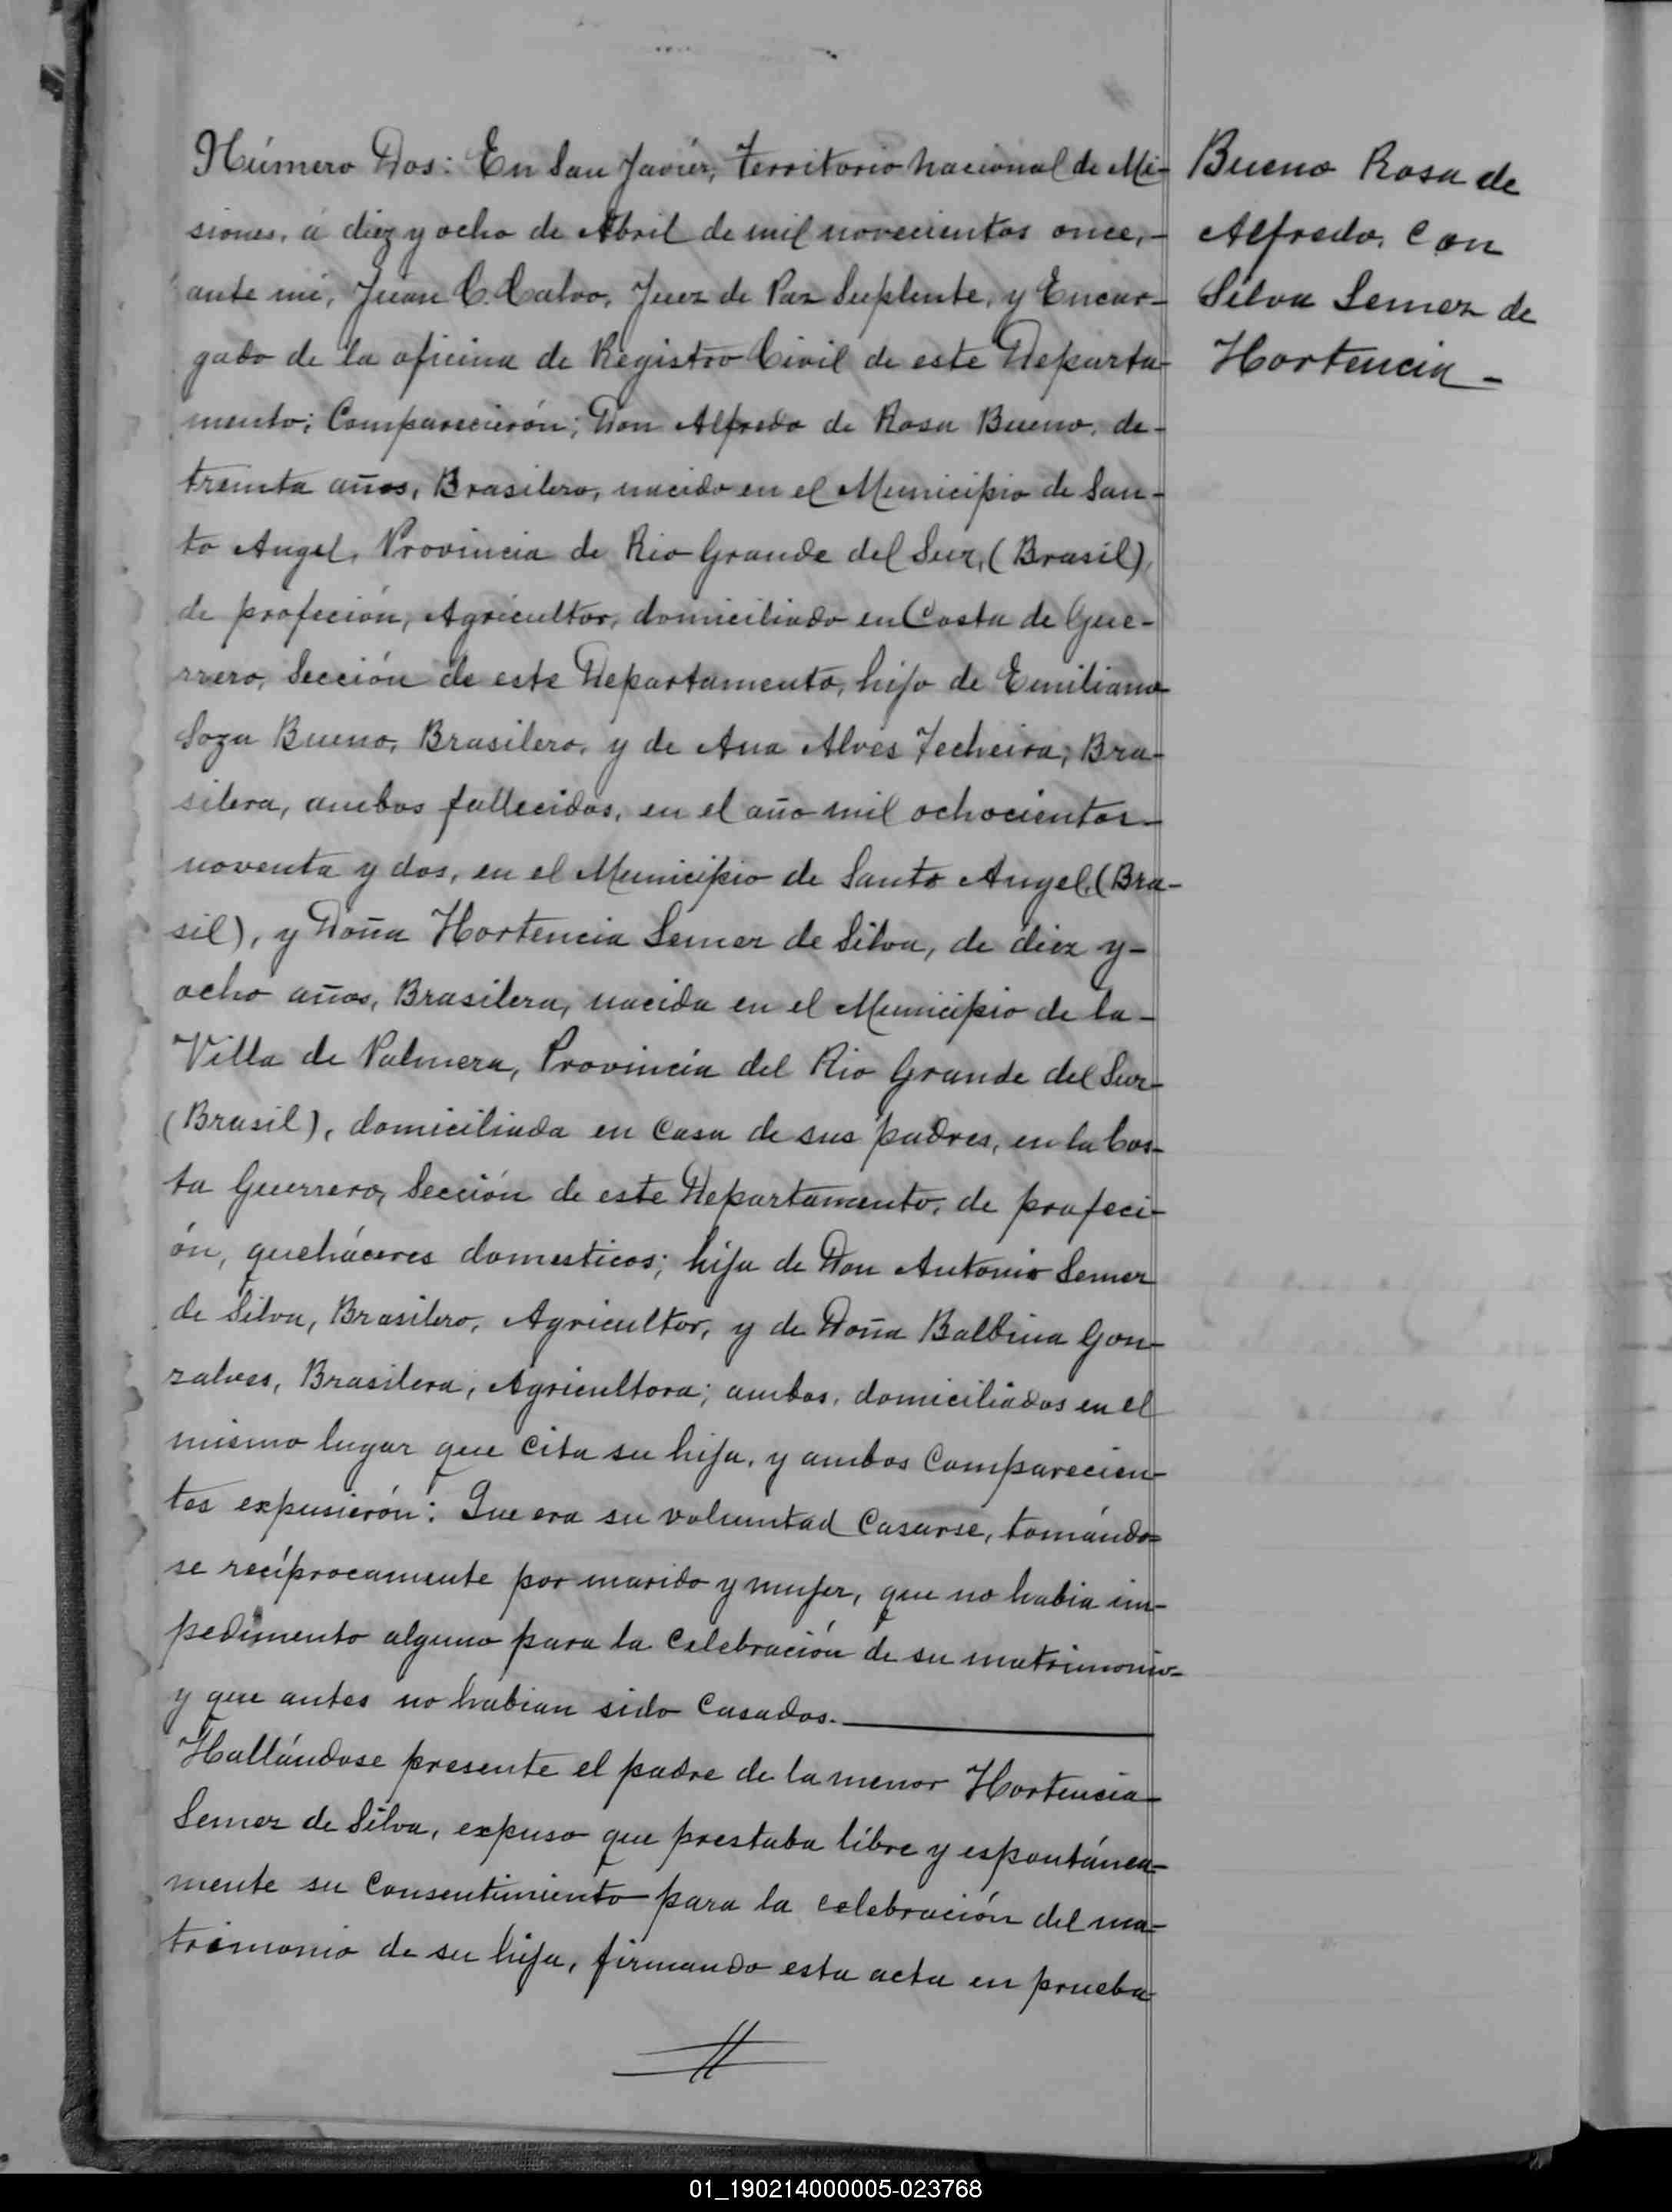 Número Dos: En San Javier, Territorio Nacional de Mi-
siones, á diez y ocho de Abril de mil novecientos once,-
ante mi, Juan C. Calvo, Juez de Paz Suplente, y Encar-
gado de la oficina de Registro Civil de este Departa-
mento; Comparecierón; Don Alfredo de Rosa Bueno, de-
treinta años, Brasilero, nacido en el Municipio de San-
to Angel, Provincia de Rio Grande del Sur, (Brasil),
de profeción, Agricultor, domiciliado en Costa de Gue-
rrero, Sección de este Departamento, hijo de Emiliano
Soza Bueno, Brasilero, y de Ana Alves Techeira, Bra-
silera, ambos fallecidos, en el año mil ochocientos-
noventa y dos, en el Municipio de Santo Angel, (Bra-
sil), y Doña Hortencia Semer de Silva, de diez y-
ocho años, Brasilera, nacida en el Municipio de la-
Villa de Palmera, Provincia del Rio Grande del Sur-
(Brasil), domiciliada en casa de sus padres, en la Cos-
ta Guerrero, Sección de este Departamento, de profeci-
ón, queháceres domesticos; hija de Don Antonio Semer
de Silva, Brasilero, Agricultor, y de Doña Balbina Gon-
zalves, Brasilera, Agricultora; ambos, domiciliados en el
mismo lugar que cita su hija, y ambos Comparecien-
tes expusierón: Que era su voluntad Casarse, tomándo=
se recíprocamente por marido y mujer, que no habia im-
pedimento alguno para la Celebración de su matrimonio-
y que antes no habian sido Casados.
Hallándose presente el padre de la menor Hortencia
Semer de Silva, expuso que prestaba libre y espontánea-
mente su Consentimiento para la celebración del ma-
trimonio de su hija, firmando esta acta en prueba
Bueno Rosa de
Alfredo. Con
Silva Semer de
Hortencia-
01_190214000005-023768